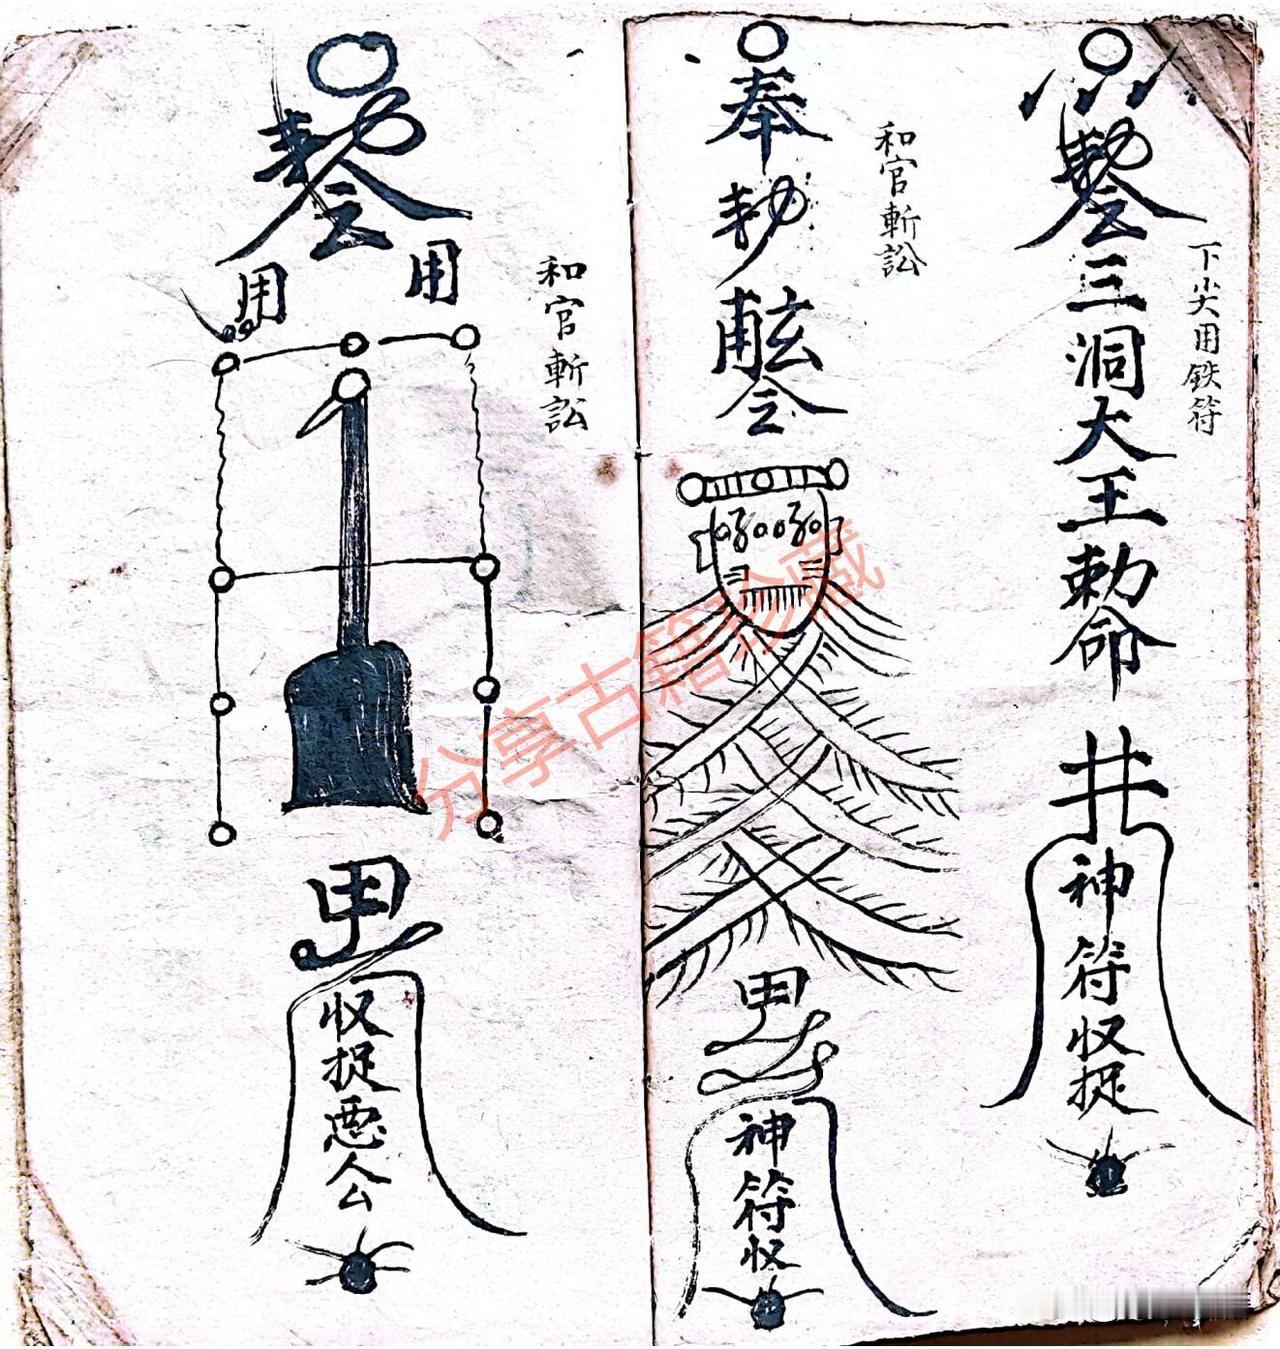 下尖用铁符
三洞大王勅命
井
神符収捉
和官斬訟
奉勅
令
神符収
和官斬訟
用
用
収捉惡公
分享古籍珍藏